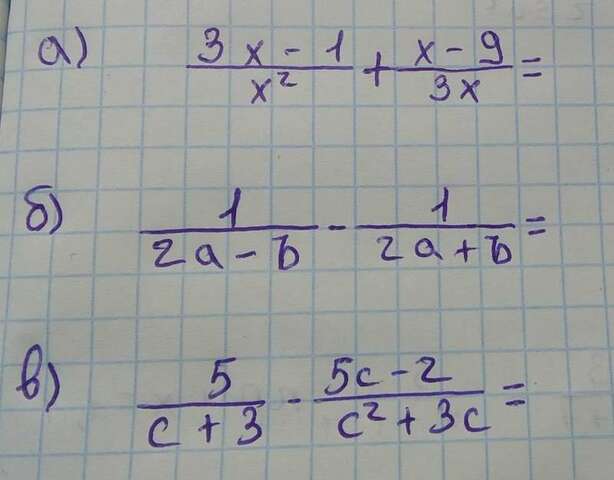 а) (3x - 1)/x² + (x - 9)/3x =
б) 1/(2a - b) - 1/(2a + b) =
в) 5/(c + 3) - (5c - 2)/(c² + 3c) =